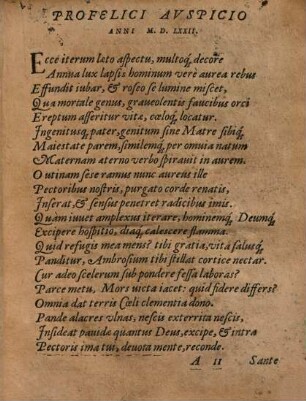 PROFELICI AVSPICIO
ANNI M. D. LXXII.
Ecce iterum læto aspectu, multoq́, decore
Annua lux lapsis hominum verè aurea rebus
Effundit iubar, & roseo se lumine miscet,
Qua mortale genus, graueolentis faucibus orci
Ereptum asseritur vita, cæloq́, locatur.
Ingenitusq́, pater, genitum sine Matre sibiq́,
Maiestate parem, similemq́, per omnia natum
Maternam æterno verbo spirauit in aurem.
O utinam sese ramus nunc aureus ille
Pectoribus nostris, purgato corde renatis,
Inserat, & sensus penetret radicibus imis.
Quàm iuuet amplexus iterare, hominemq́, Deumq́
Excipere hospitio, diaq́, calescere flamma.
Quid refugis mea mens? tibi gratia, vita, salusq́,
Panditur, Ambrosium tibi stillat cortice nectar.
Cur adeo scelerum sub pondere fessa laboras?
Parce metu, Mors victa iacet: quid fidere differs?
Omnia dat terris Cœli clementia dono.
Pande alacres vlnas, nescis exterrita nescis,
Insideat pauidæ quantus Deus, excipe, & intra
Pectoris ima tui, deuota mente, reconde.
A II Sancte